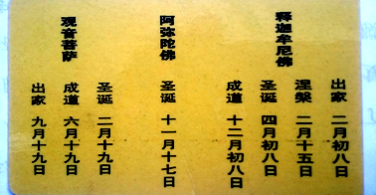 释迦牟尼佛
出家 二月初八日
涅槃 二月十五日
圣诞 四月初八日
成道 十二月初八日
阿弥陀佛
圣诞 十一月十七日
观音菩萨
圣诞 二月十九日
成道 六月十九日
出家 九月十九日